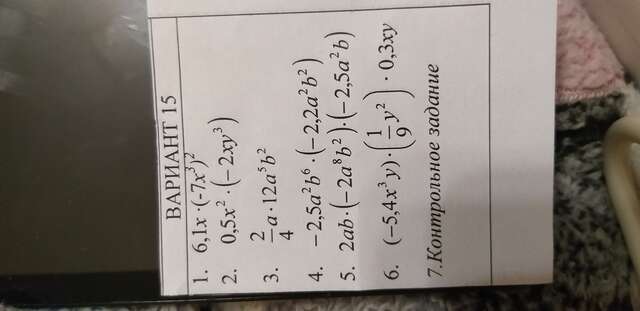 ВАРИАНТ 15
1. 6,1x ·(-7x³)²
2. 0,5x² ·(−2xy³)
3. 2/4 a·12a⁵b²
4. −2,5a²b⁶ ·(−2,2a²b²)
5. 2ab·(−2a⁸b²)·(−2,5a²b)
6. (−5,4x³y)·(1/9 y²) · 0,3xy
7.Контрольное задание